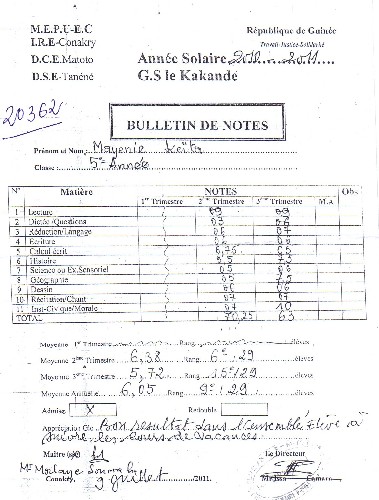 M.E.P.U-E.C
I.R.E-Conakry
D.C.E.Matoto
D.S.E-Tanéné
République de Guinée
Travail-Justice-Solidarité
Année Solaire 2010 2011
G.S le Kakandé
20362
BULLETIN DE NOTES
Prénom et Nom : Mayenie Keïta
Classe : 5e Année
N° Matière NOTES Obs
1er Trimestre 2ème Trimestre 3ème Trimestre M.A
1 Lecture 09 09
2 Dictée /Questions 03
3 Rédaction/Langage 06 07
4 Ecriture 06
5 Calcul écrit 6,75
6 Histoire
7 Science ou Ex.Sensoriel 05
8 Géographie 05
9 Dessin 06 06
10 Récitation/Chant 07 07
11 Inst-Civique/Morale 07 10
TOTAL 70,25 63
Moyenne 1er Trimestre Rang élèves
Moyenne 2ème Trimestre 6,38 Rang 6e/29 élèves
Moyenne 3ème Trimestre 5,72 Rang 15e/29 élèves
Moyenne Annuelle 6,05 Rang 9e/29 élèves
Admise X Redouble
Appréciation Gle : Bon résultat dans l'ensemble Elève à
suivre les cours de vacances
Maître Le Directeur
Mr Morlaye Camara
Conakry, 9 juillet 2011.